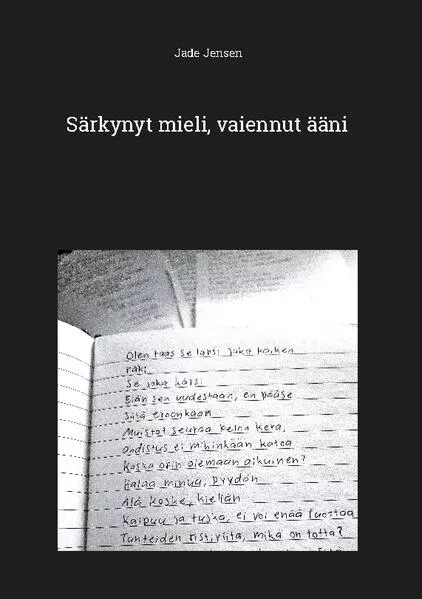 Jade Jensen
Särkynyt mieli, vaiennut ääni
Olen taas se lapsi joka kaiken
näki
Se joka kärsi
Elän sen uudestaan, en pääse
siitä eroonkaan
Muistot seuraa pelon kera,
ahdistus ei mihinkään katoa
Koska opin olemaan aikuinen?
Halaa minua, pyydän
Älä koske, kiellän
Kaipuu ja tuska, ei voi enää luottaa
Tunteiden ristiriita, mikä on totta?